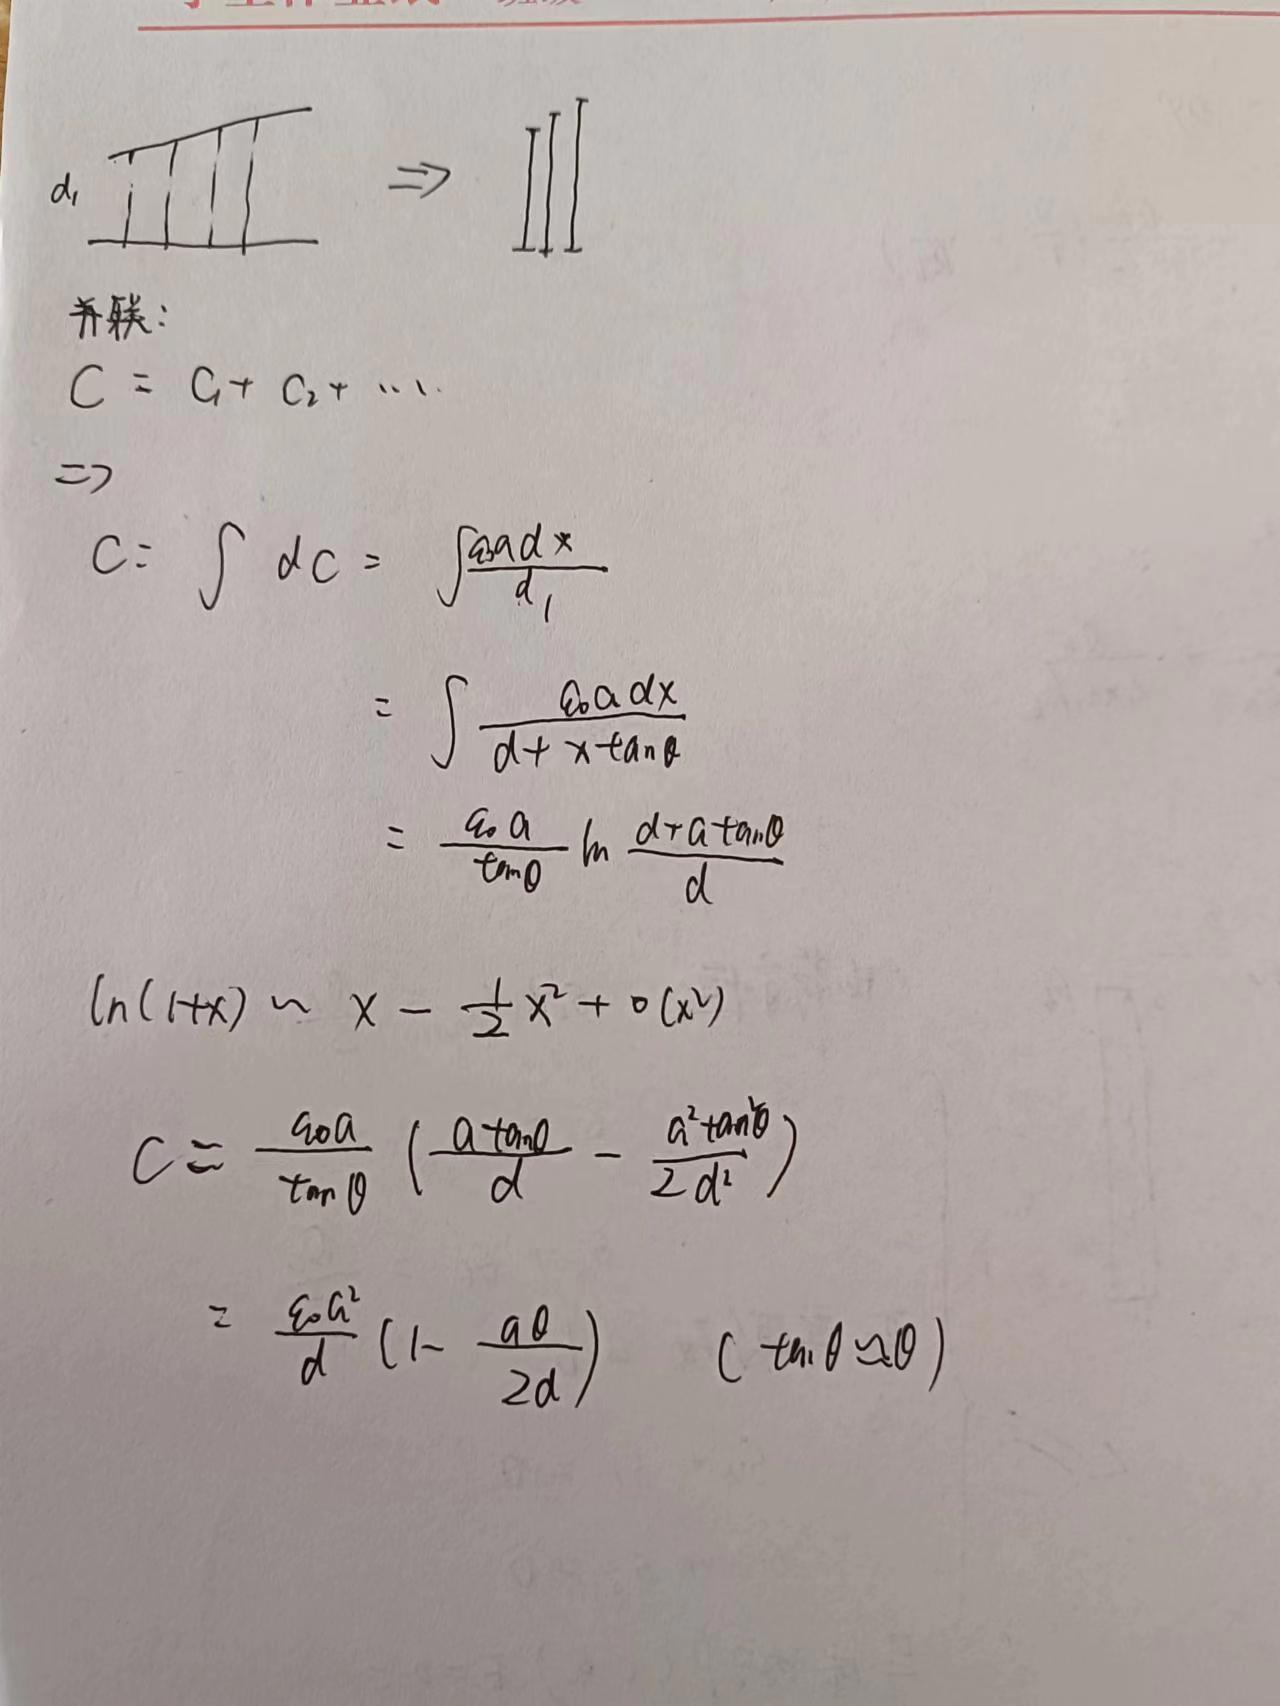 d₁
⇒
并联:
C = C₁+ C₂+ ....
=>
C = ∫ dC = ∫ ε₀adx / d₁
= ∫ ε₀adx / (d+xtanθ)
= ε₀a / tanθ ln (d+atanθ) / d
ln(1+x) ~ x - 1/2 x² + o(x²)
C ≈ ε₀a / tanθ ( atanθ / d - a²tan²θ / 2d² )
= ε₀a² / d (1- aθ / 2d) ( tanθ ≈ θ )